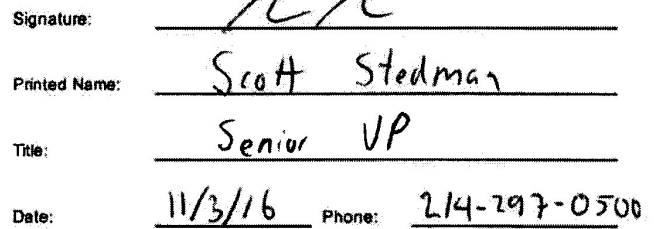 Signature:
Printed Name: Scott Stedman
Title: Senior VP
Date: 11/3/16 Phone: 214-297-0500